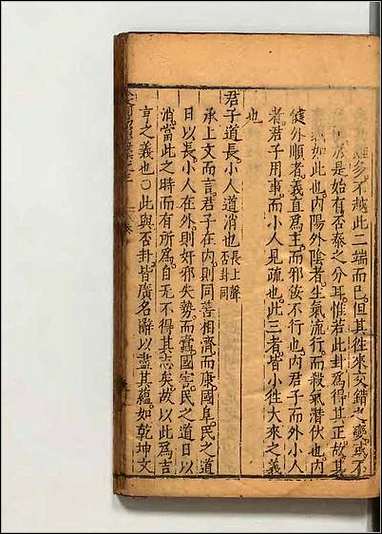 雖多不越此二端而已但其往來交錯之變或不
是始有否泰之分耳惟若此卦爲得其正故其
如此也內陽外陰者生氣流行而殺氣潛伏也內
健外順者義直爲主而邪妄不行也內君子而外小人
者君子用事而小人見疏也此三者皆小往大來之義
也
君子道長小人道消也長上聲否卦同
承上文而言君子在內則同善相齊而康國阜民之道
日以長小人在外則奸邪失勢而蠹國害民之道日以
消當此之時而有所爲自无不得其志矣故以此爲吉
亨之義也○此與否卦皆廣名辭以盡其蘊如乾坤文